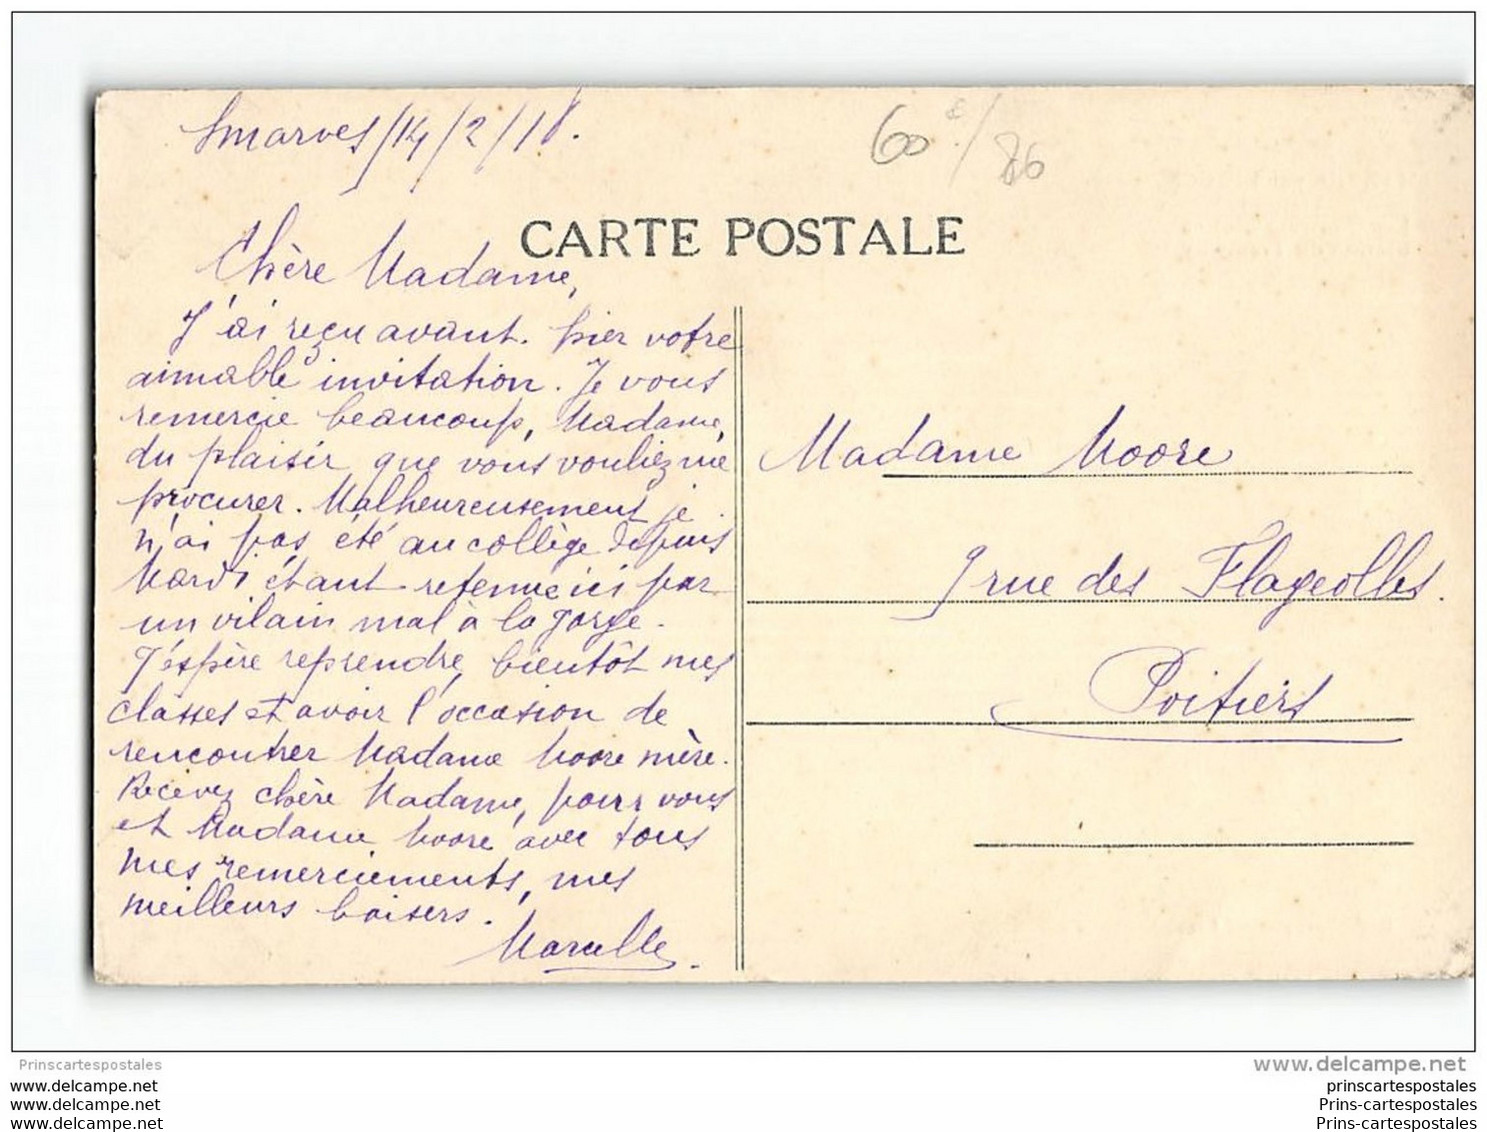 Smarves/14/2/18.
60€/86
CARTE POSTALE
Chère Madame,
J'ai reçu avant-hier votre
aimable invitation. Je vous
remercie beaucoup, Madame,
du plaisir que vous vouliez me
procurer. Malheureusement je
n'ai pas été au collège depuis
Mardi étant retenue ici par
un vilain mal à la gorge.
J'espère reprendre bientôt mes
classes et avoir l'occasion de
rencontrer Madame Moore mère.
Recevez chère Madame, pour vous
et Madame Moore avec tous
mes remerciements, mes
meilleurs baisers.
Marcelle
Madame Moore
9 rue des Flageolles.
Poitiers
Prinscartespostales
www.delcampe.net
www.delcampe.net
www.delcampe.net
www.delcampe.net
prinscartespostales
Prins-cartespostales
Prins-cartespostales